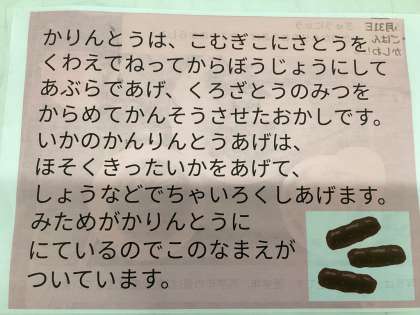 かりんとうは、こむぎこにさとうを
くわえてねってからぼうじょうにして
あぶらであげ、くろざとうのみつを
からめてかんそうさせたおかしです。
いかのかんりんとうあげは、
ほそくきったいかをあげて、
しょうなどでちゃいろくしあげます。
みためがかりんとうに
にているのでこのなまえが
ついています。